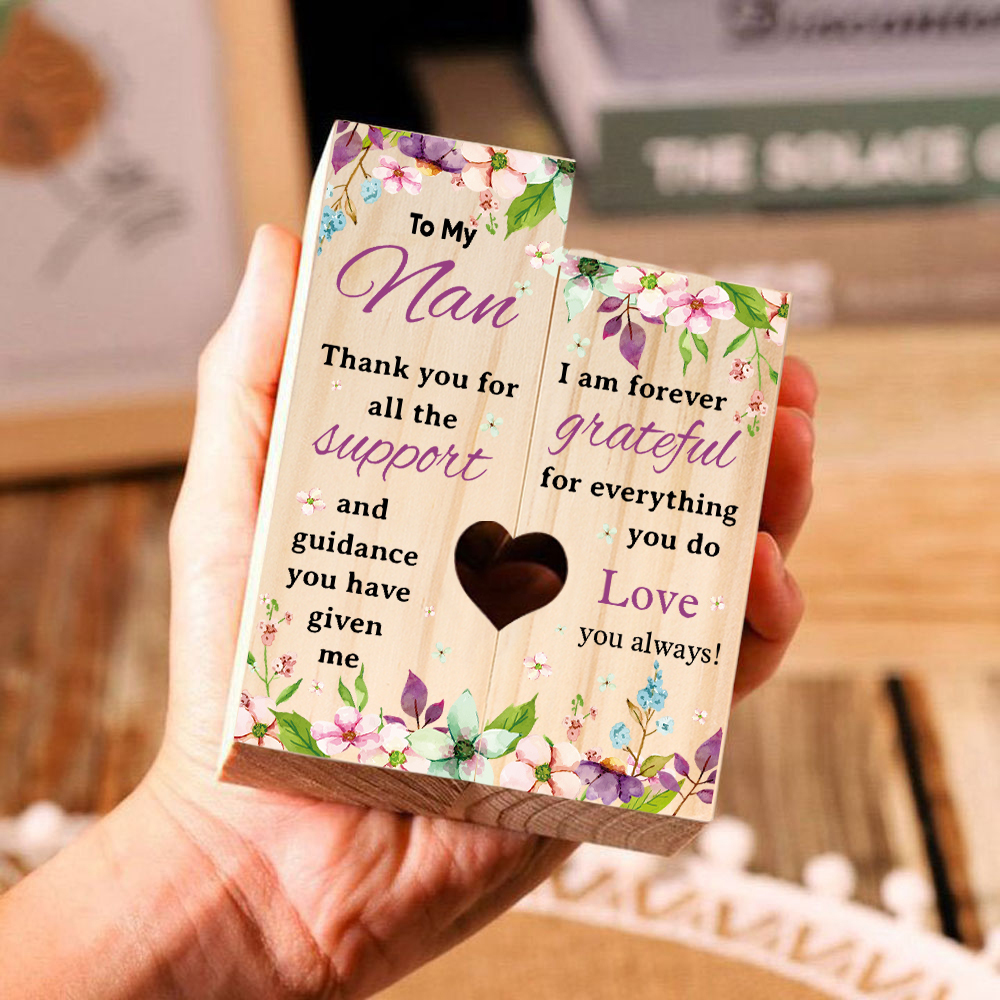 To My
Nan
Thank you for
all the
support
and
guidance
you have
given
me
I am forever
grateful
for everything
you do
Love
you always!
THE SOLACE